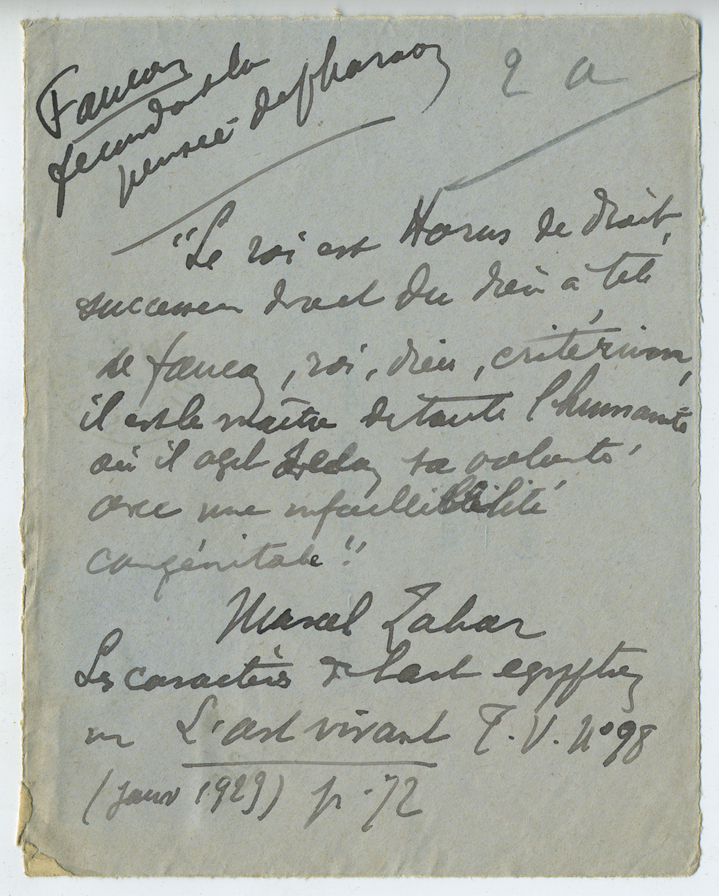 Faucon
fécondant la
pensée de pharaon
2 a
"Le roi est Horus de droit,
successeur direct du dieu à tête
de faucon, roi, dieu, critérium,
il est le maître de toute l'humanité
où il agit selon sa volonté
avec une infaillibilité
congénitale"
Marcel Zahar
Les caractères de l'art egyptien
in L'art vivant T. V. No 98
(janv 1929) p. 72